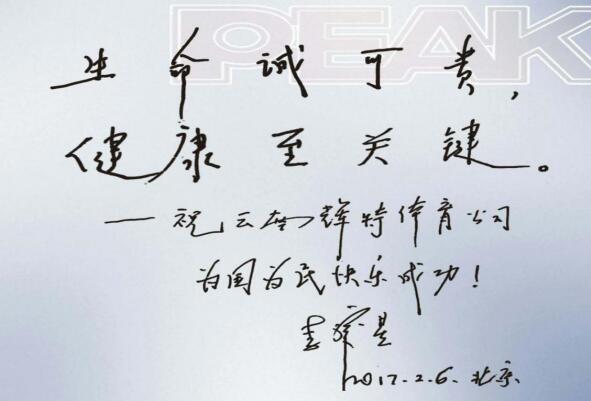 PEAK
生命诚可贵，
健康至关键。
——祝云南辉特体育公司
为国为民快乐成功！
2017.2.6.北京